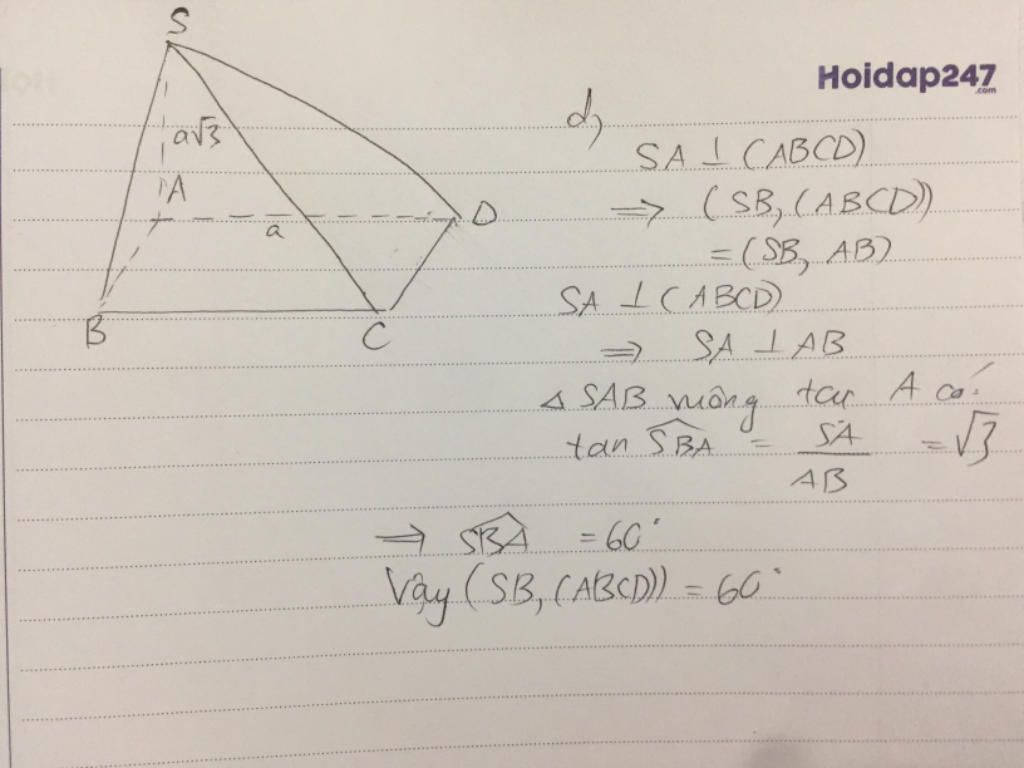 S
Hoidap247
.com
a√3
A
D
a
B
C
d,
SA ⊥ (ABCD)
⇒ (SB, (ABCD))
= (SB, AB)
SA ⊥ (ABCD)
⇒ SA ⊥ AB
△ SAB vuông tại A có:
tan SBA = SA / AB = √3
⇒ SBA = 60°
Vậy (SB, (ABCD)) = 60°